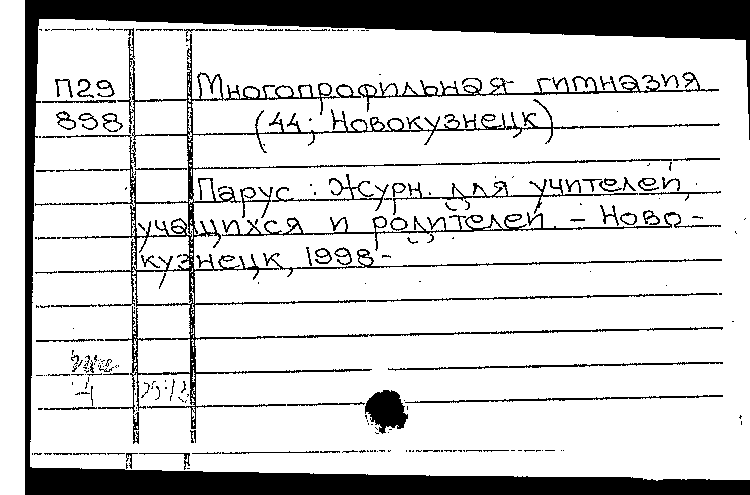 П29 Многопрофильная гимназия
898 (44; Новокузнецк)
Парус: Журн. для учителей,
учащихся и родителей. - Ново-
кузнецк, 1998-
4